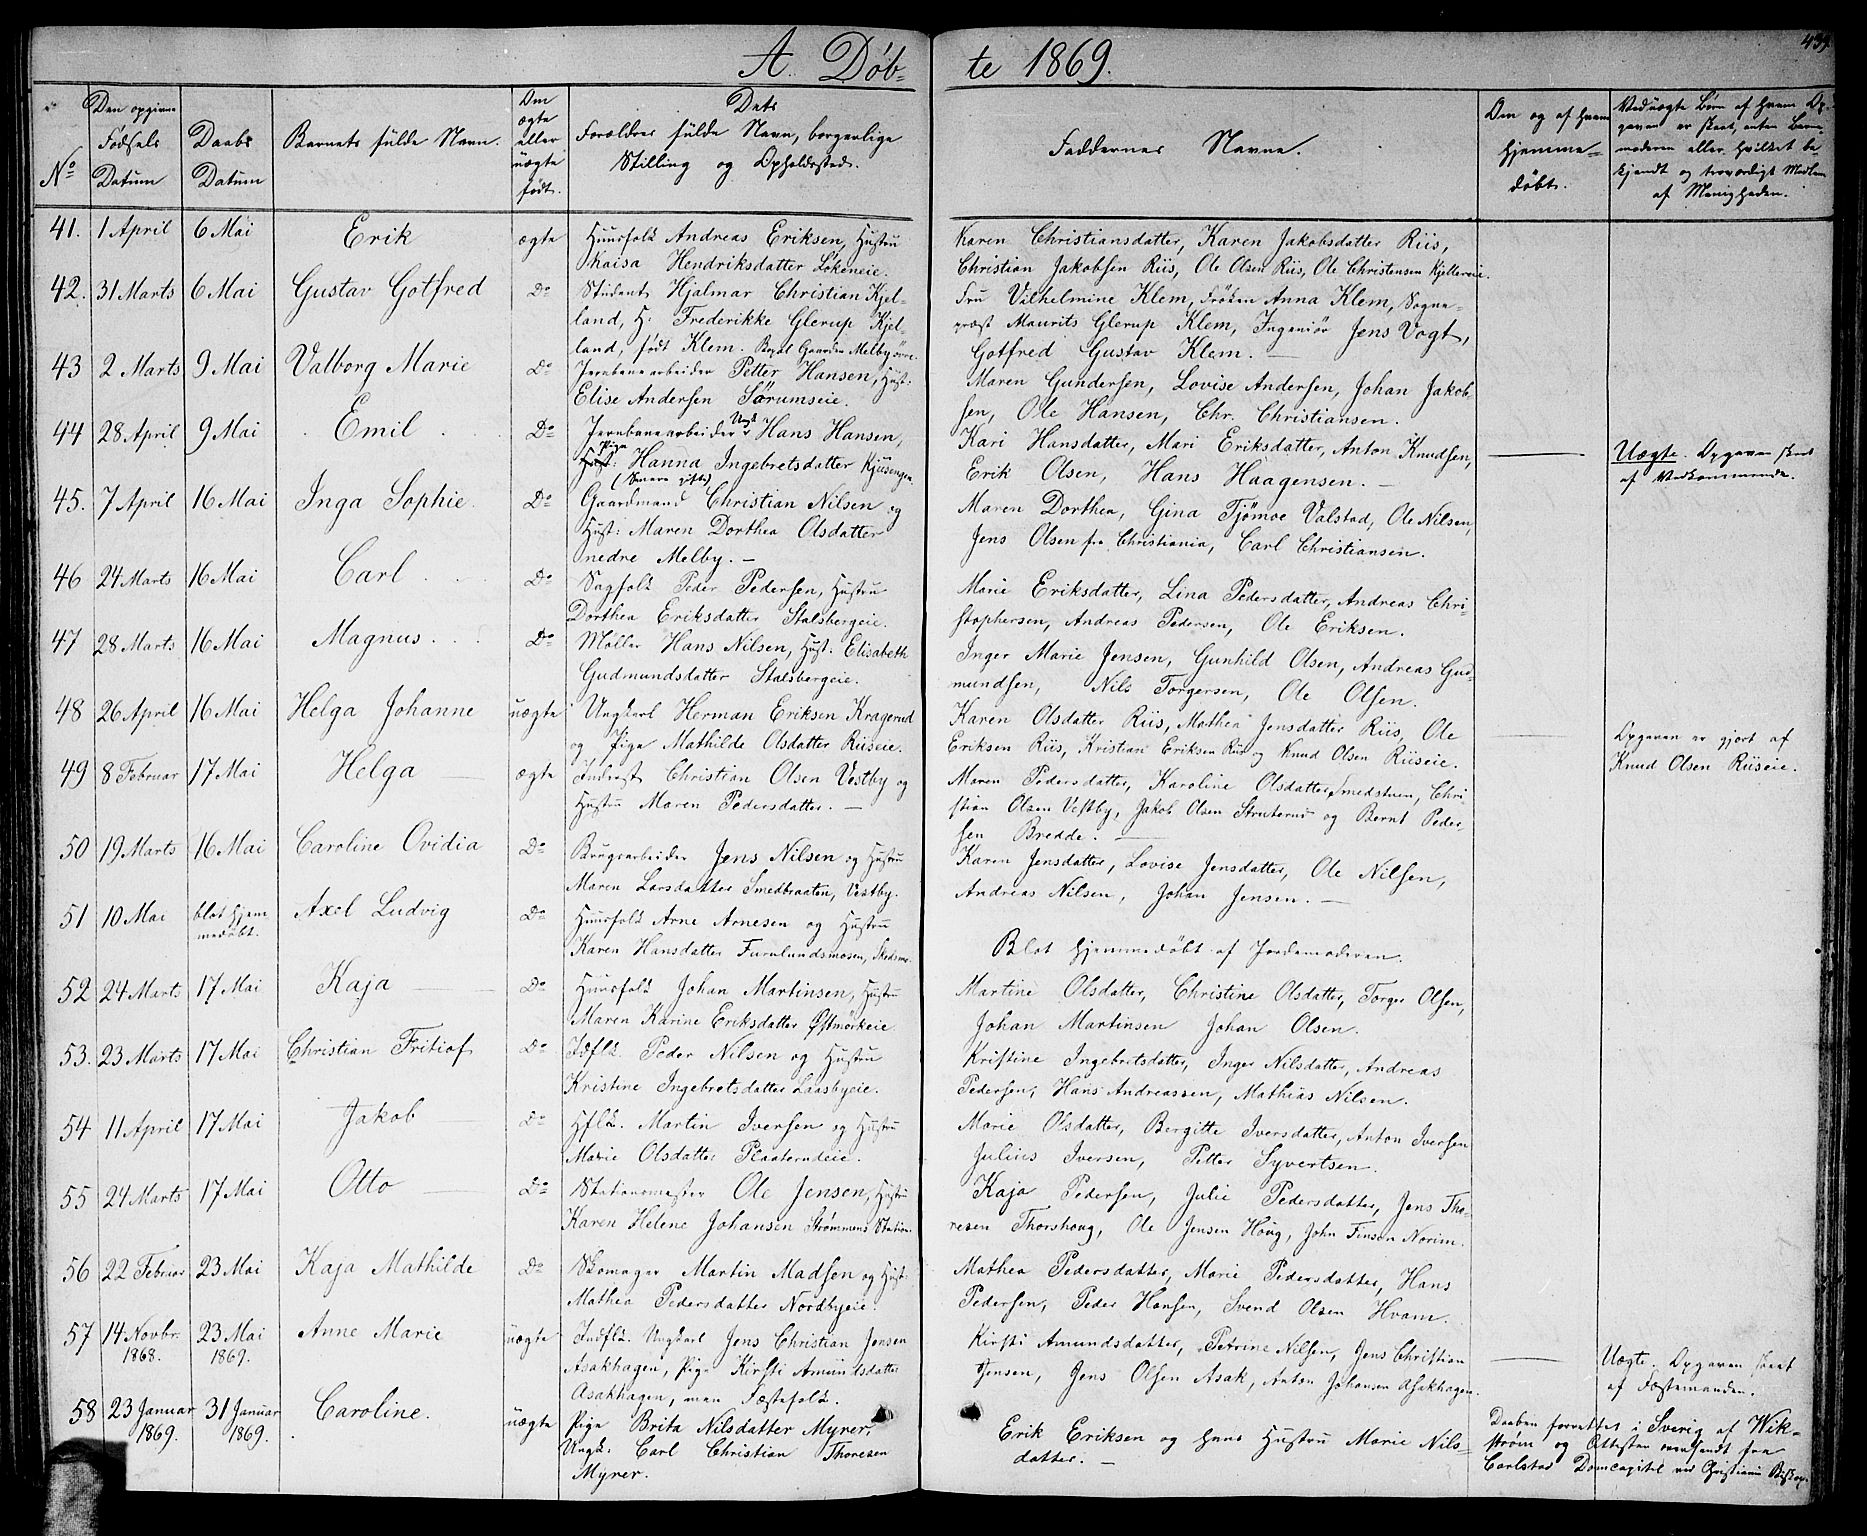 A. Døb- te 1869.
439.
No
Den opgivne Fødsels Datum
Daabs Datum
Barnets fulde Navn.
Om ægte eller uægte født.
Dets Forældres fulde Navn, borgerlige Stilling og Opholdssted.
Faddernes Navne.
Om og af hvem hjemme-døbt.
Ved uægte Børn af hvem Op-
gaven er skeet, enten Barne-
moderen eller hvilket be-
kjendt og troværdigt Medlem
af Menigheden.
41. 1 April 6 Mai Erik ægte Huusfolk Andreas Eriksen, Hustru
Kaisa Hendriksdatter Løkeneie.
Karen Christiansdatter, Karen Jakobsdatter Riis,
Christian Jakobsen Riis, Ole Olsen Riis, Ole Christensen Kjellereie.
42. 31 Marts 6 Mai Gustav Gotfred Do Student Hjalmar Christian Kjel-
land, H. Frederikke Glerup Kjel-
land, født Klem. Gaarden Melby søre.
Fru Vilhelmine Klem, Frøken Anna Klem, Sogne-
præst Maurits Glerup Klem, Ingeniør Jens Vogt,
Gotfred Gustav Klem. —
43 2 Marts 9 Mai Valborg Marie Do Jernbanearbeider Petter Hansen, Hust.
Elise Andersen Sørumseie.
Maren Gundersen, Lovise Andersen, Johan Jakob-
sen, Ole Hansen, Chr. Christiansen.
44 28 April 9 Mai Emil Do Jernbanearbeider Ungk Hans Hansen,
Hust: Pige Hanna Ingebretsdatter Kjusengen
(Senere gifte)
Kari Hansdatter, Mari Eriksdatter, Anton Knudsen,
Erik Olsen, Hans Haagensen. —
Uægte. Opgaven skeet
af Vedkommende.
45. 7 April 16 Mai Inga Sophie. Do Gaardmand Christian Nilsen og
Hust: Maren Dorthea Olsdatter
nedre Melby. —
Maren Dorthea, Gina Tjømoe Valstad, Ole Nilsen,
Jens Olsen fra Christiania, Carl Christiansen.
46 24 Marts 16 Mai Carl Do Sagfolk Peder Pedersen, Hustru
Dorthea Eriksdatter Stalsbergeie.
Marie Eriksdatter, Lina Pedersdatter, Andreas Chri-
stophersen, Andreas Pedersen, Ole Eriksen.
47 28 Marts 16 Mai Magnus Do Møller Hans Nilsen, Hust: Elisabeth
Gudmundsdatter Stalsbergeie.
Inger Marie Jensen, Gunhild Olsen, Andreas Gud-
mundsen, Nils Torgersen, Ole Olsen.
48 26 April 16 Mai Helga Johanne uægte Ungkarl Herman Eriksen Kragerud
og Pige Mathilde Olsdatter Riiseie.
Karen Olsdatter Riis, Mathea Jensdatter Riis, Ole
Eriksen Riis, Kristian Eriksen Riis og Knud Olsen Riiseie.
Opgaven er gjort af
Knud Olsen Riiseie.
49 8 Februar 17 Mai Helga ægte Inderst Christian Olsen Vestby og
Hustru Maren Pedersdatter. —
Maren Pedersdatter, Karoline Olsdatter Smedstuen, Chri-
stian Olsen Vestby, Jakob Olsen Struterud og Bernt Peder-
sen Bredde. —
50 19 Marts 16 Mai Caroline Ovidia Do Brugsarbeider Jens Nilsen og Hustru
Maren Larsdatter Smedbraaten, Vestby.
Karen Jensdatter, Lovise Jensdatter, Ole Nilsen,
Andreas Nilsen, Johan Jensen. —
51 10 Mai blot hjem-
medøbt. Axel Ludvig Do Huusfolk Arne Arnesen og Hustru
Karen Hansdatter Furulundsmosen, Skedsmo.
Blot hjemmedøbt af Jordemoderen.
52 24 Marts 17 Mai Kaja Do Huusfolk Johan Martinsen, Hustru
Maren Karine Eriksdatter Østmørkeie
Martine Olsdatter, Christine Olsdatter, Torger Olsen,
Johan Martinsen Johan Olsen.
53. 23 Marts 17 Mai Christian Fritiof Do Idflk. Peder Nilsen og Hustru
Kristine Ingebretsdatter Laasbyeie.
Kristine Ingebretsdatter, Inger Nilsdatter, Andreas
Pedersen, Hans Andreassen, Mathias Nilsen.
54 11 April 17 Mai Jakob Do Hflk. Martin Iversen og Hustru
Marie Olsdatter Plaaterudeie.
Marie Olsdatter, Bergitte Iversdatter, Anton Iversen
Julius Iversen, Petter Syvertsen.
55 24 Marts 17 Mai Otto Do Stationsmester Ole Jensen, Hustru
Karen Helene Johansen Strømmens Station
Kaja Pedersen, Julie Pedersdatter, Jens Tho-
resen Thorshoug, Ole Jensen Houg, John Finsen Norim.
56 22 Februar 23 Mai Kaja Mathilde Do Skomager Martin Madsen og Hust:
Mathea Pedersdatter Nordbyeie.
Mathea Pedersdatter, Marie Pedersdatter, Hans
Pedersen, Peder Hansen, Svend Olsen Hvam.
57 14 Novbr. 1868. 23 Mai 1869. Anne Marie uægte Indflk. Ungkarl Jens Christian Jensen
Asakhagen, Pige Kirsti Amundsdatter
Asakhagen, men Fæstefolk.
Kirsti Amundsdatter, Petrine Nilsen, Jens Christian
Jensen, Jens Olsen Asak, Anton Johansen Asakhagen.
Uægte. Opgaven skeet
af Fæstemanden.
58 23 Januar 1869. 31 Januar 1869. Caroline. uægte Pige Brita Nilsdatter Myrer,
Ungk: Carl Christian Thoresen
Myrer.
Erik Eriksen og hans Hustru Marie Nils-
datter. —
Daaben forrettet i Sverig af Wik-
strøm og Attesten oversendt fra
Carlstad Domcapitel ved Christiania Biskop.